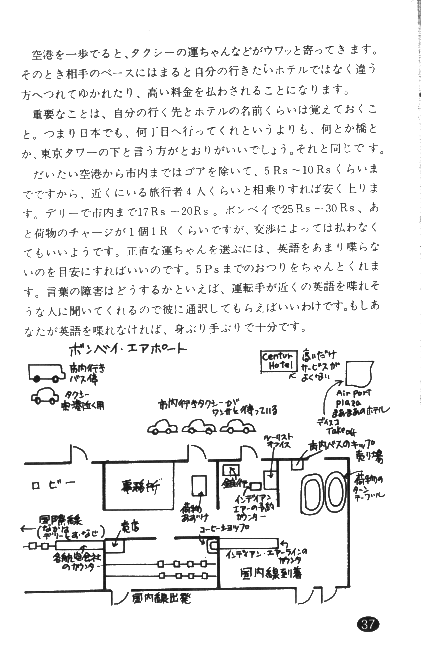 空港を一歩でると、タクシーの運ちゃんなどがウワッと寄ってきます。
そのとき相手のペースにはまると自分の行きたいホテルではなく違う
方へつれてゆかれたり、高い料金を払わされることになります。
重要なことは、自分の行く先とホテルの名前くらいは覚えておくこ
と。つまり日本でも、何丁目へ行ってくれというよりも、何とか橋と
か、東京タワーの下と言う方がとおりがいいでしょう。それと同じです。
だいたい空港から市内まではゴアを除いて、5Rs〜10Rsくらいま
でですから、近くにいる旅行者4人くらいと相乗りすれば安く上りま
す。デリーで市内まで17Rs〜20Rs。ボンベイで25Rs〜30Rs、あ
と荷物のチャージが1個1R くらいですが、交渉によっては払わなく
てもいいようです。正直な運ちゃんを選ぶには、英語をあまり喋らな
いのを目安にすればいいのです。5Psまでのおつりをちゃんとくれま
す。言葉の障害はどうするかといえば、運転手が近くの英語を喋れそ
うな人に聞いてくれるので彼に通訳してもらえばいいわけです。もしあ
なたが英語を喋れなければ、身ぶり手ぶりで十分です。
ボンベイ・エアポート
市内行き
バス停
タクシー
空港近く用
市内行きタクシーが
ワンサと待っている
Centur
Hotel
高いだけ
サービスが
よくない
Air port
plaza
まあまあのホテル
ディスコ
Take off
ツーリスト
オフィス
市内バスのキップ
売り場
ロビー
事務所
荷物
あずけ
銀行
インディアン
エアーの予約
カウンター
荷物の
ターン
テーブル
国際線
売店
コーヒーショップ
各航空会社
のカウンター
インディアン・エアーラインの
カウンター
国内線到着
国内線出発
37